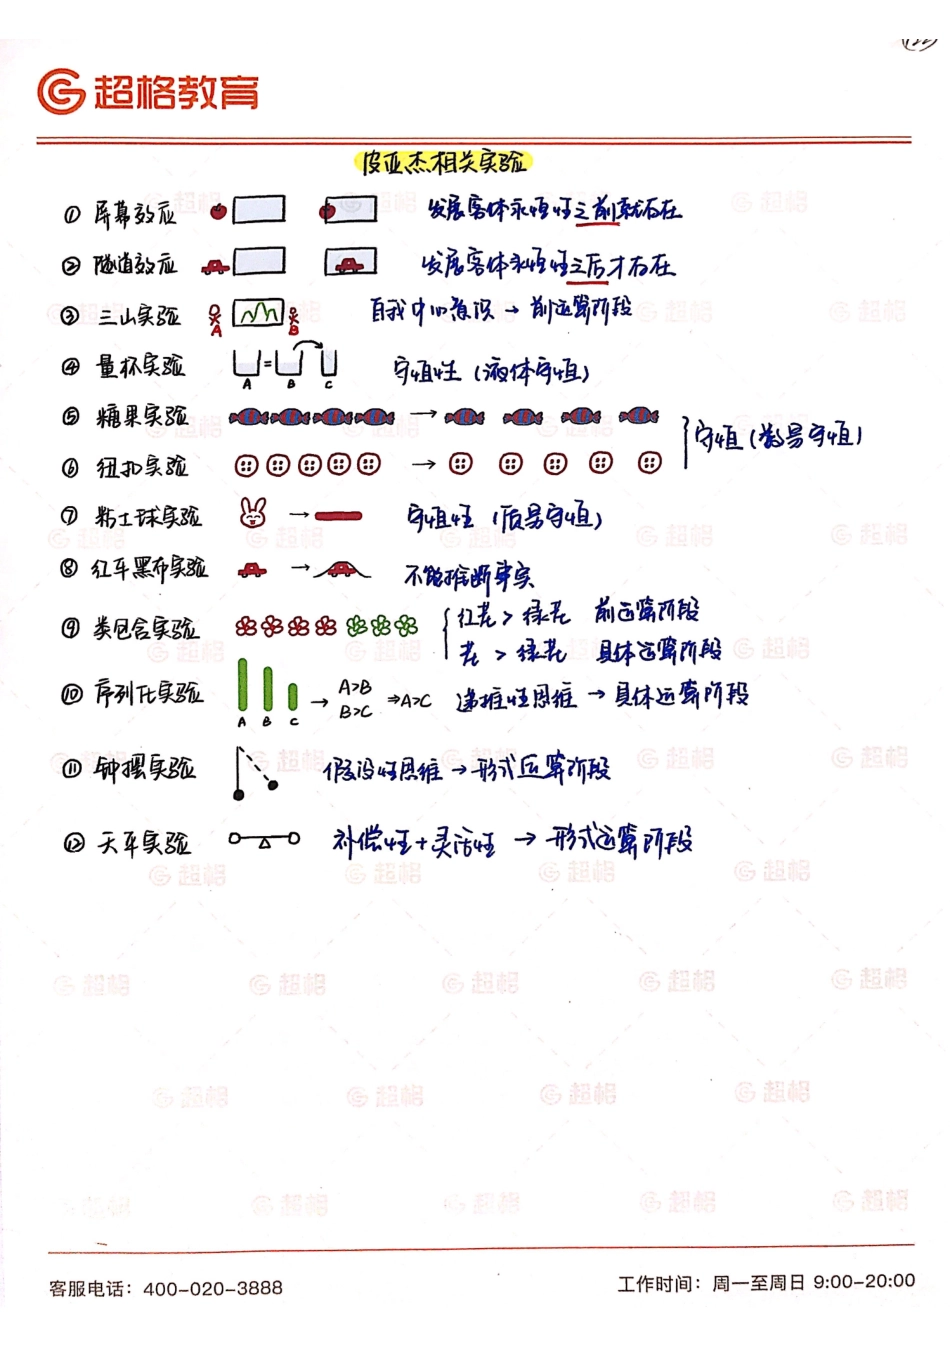 超格教育
皮亚杰相关实验
① 屏幕效应 发展客体永恒性之前就存在
② 隧道效应 发展客体永恒性之后才存在
③ 三山实验 A B 自我中心意识 → 前运算阶段
④ 量杯实验 = A B C 守恒性 (液体守恒)
⑤ 糖果实验 →
守恒 (数量守恒)
⑥ 纽扣实验 →
⑦ 粘土球实验 → 守恒性 (质量守恒)
⑧ 红车黑布实验 → 不能推断事实
⑨ 类包含实验 红花 > 绿花 前运算阶段
花 > 绿花 具体运算阶段
⑩ 序列化实验 A B C → A>B B>C ⇒A>C 递推性思维 → 具体运算阶段
⑪ 钟摆实验 假设性思维 → 形式运算阶段
⑫ 天平实验 补偿性+灵活性 → 形式运算阶段
客服电话：400-020-3888 工作时间：周一至周日 9:00-20:00